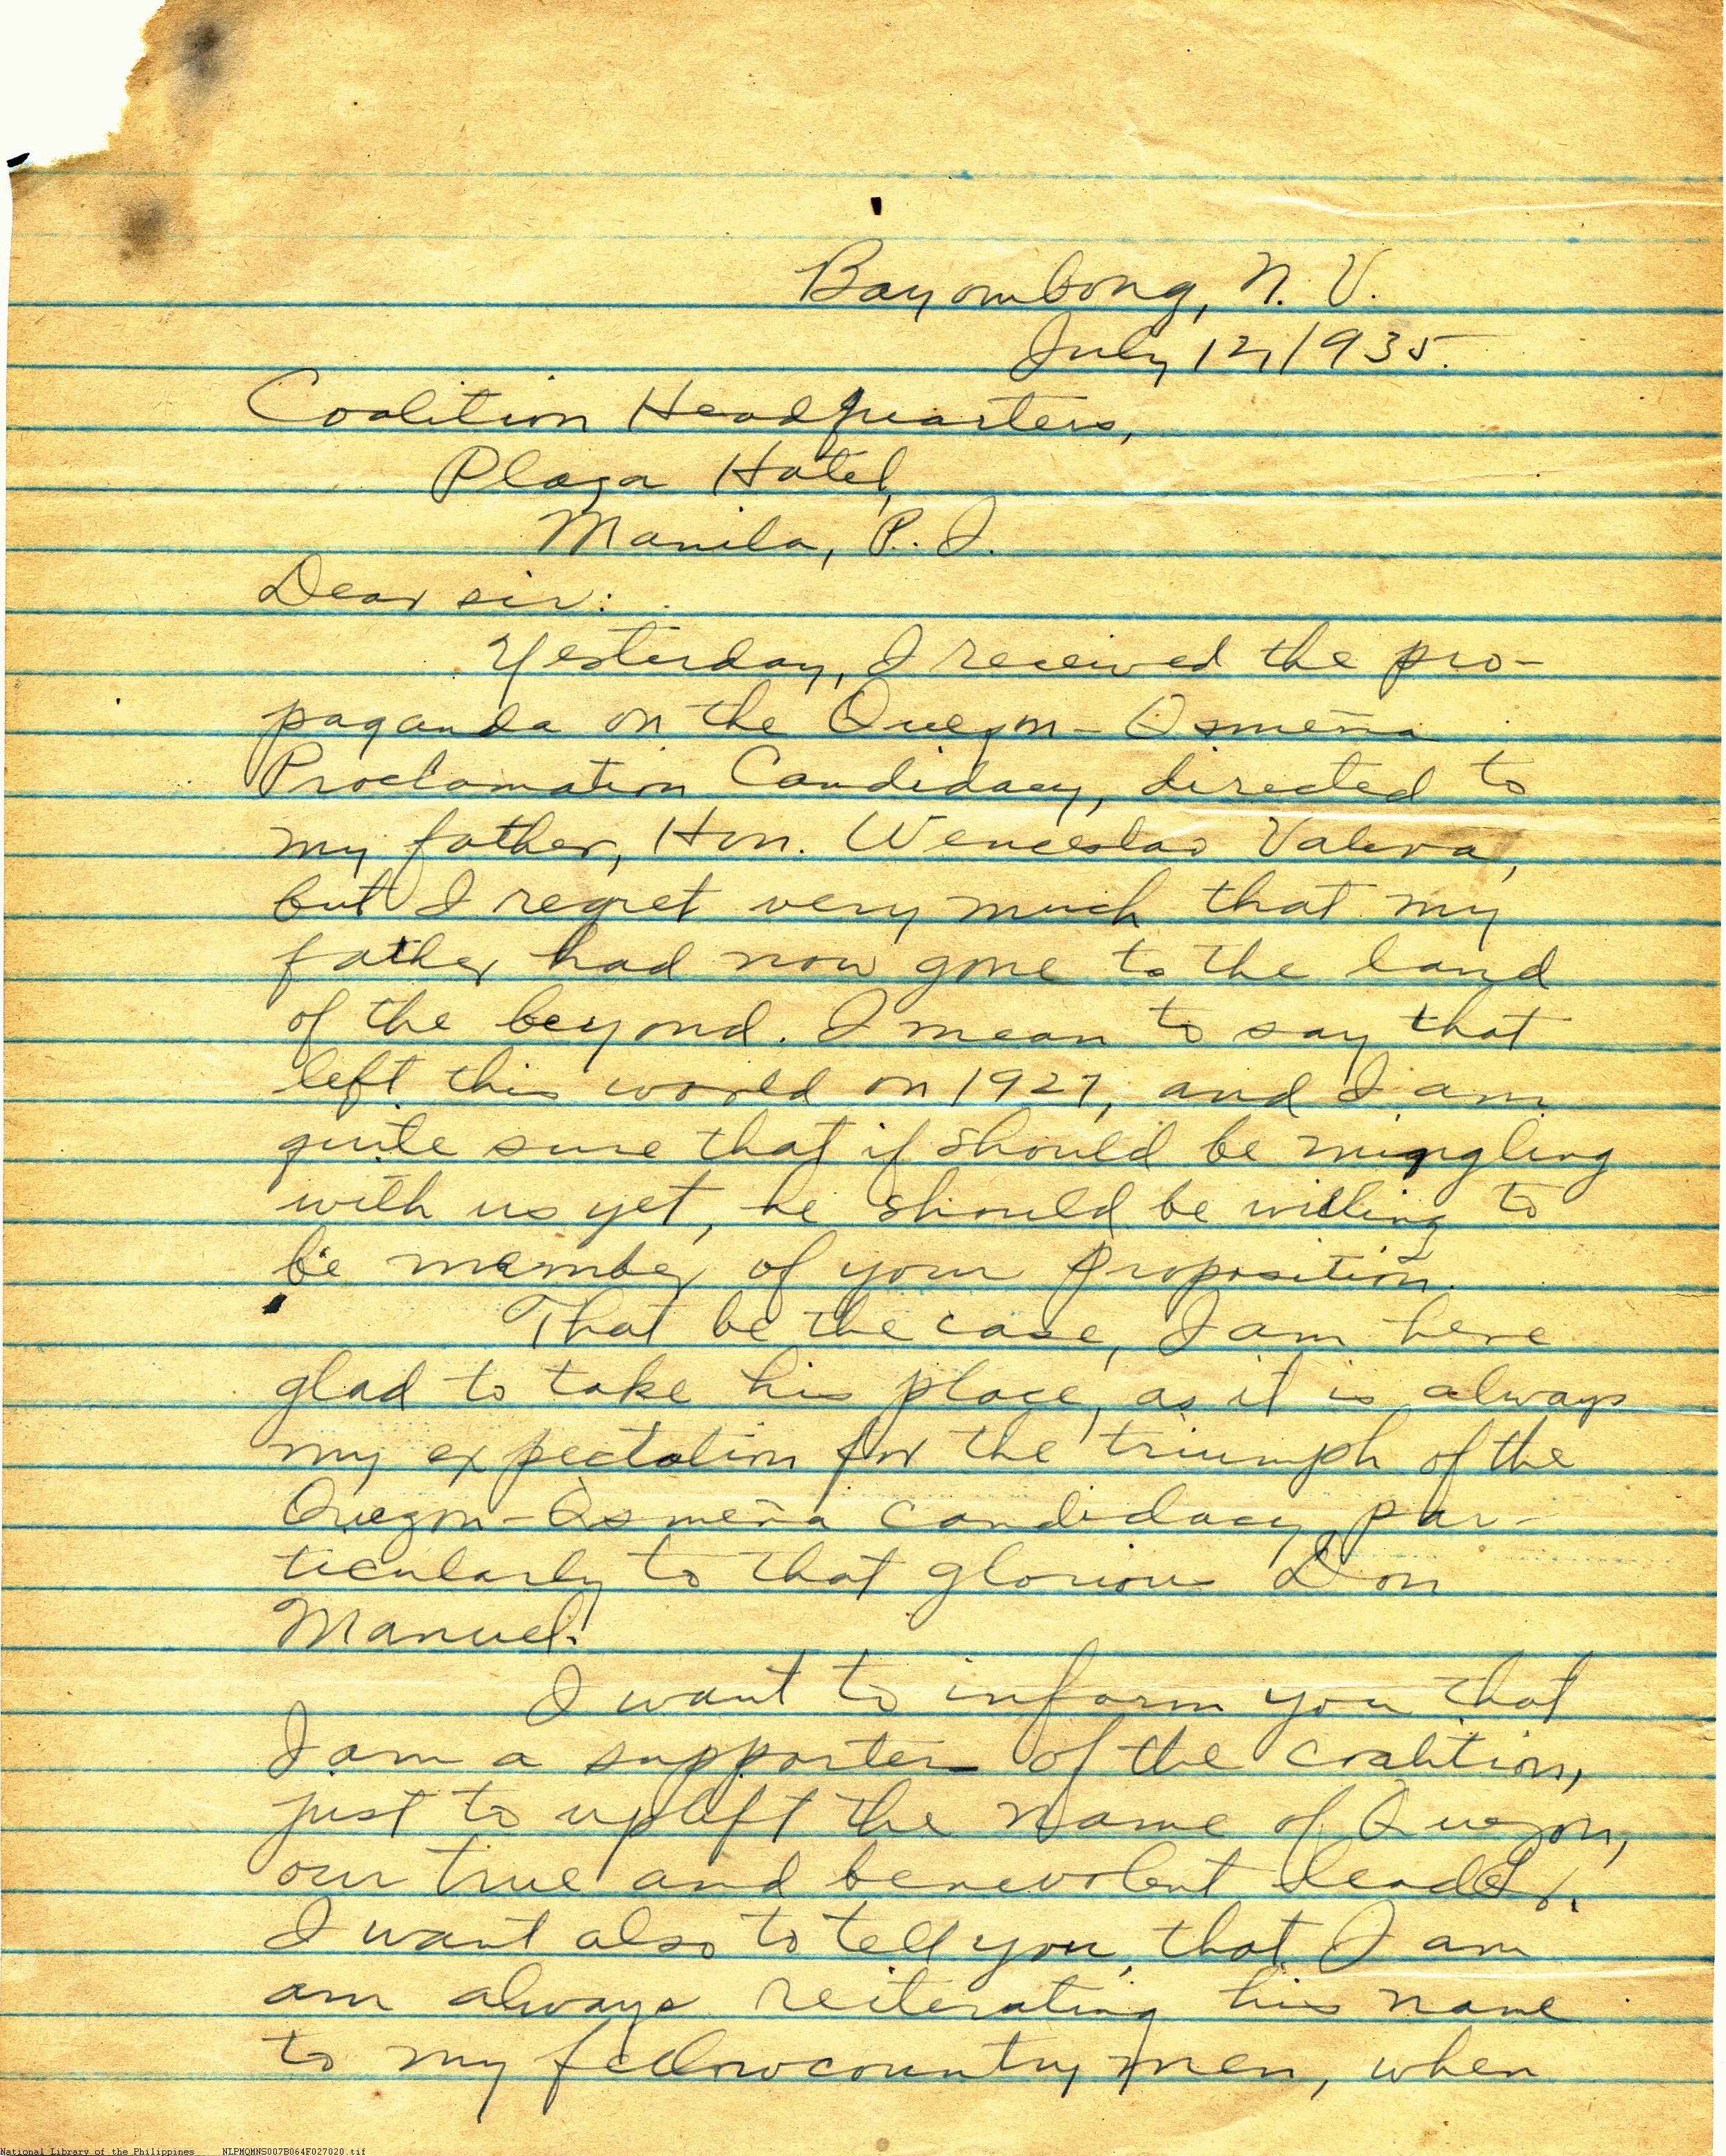 Bayombong, N. V.
July 12, 1935.
Coalition Headquarters,
Plaza Hotel,
Manila, P. I.
Dear sir:
Yesterday, I received the pro-
paganda on the Quezon-Osmeña
Proclamation Candidacy, directed to
my father, Hon. Wenceslao Valera,
but I regret very much that my
father had now gone to the land
of the beyond. I mean to say that
left this world on 1927, and I am
quite sure that if should be mingling
with us yet, he should be willing to
be member of your proposition.
That be the case, I am here
glad to take his place, as it is always
my expectation for the triumph of the
Quezon-Osmeña candidacy, par-
ticularly to that glorious Don
Manuel.
I want to inform you that
I am a supporter of the coalition,
just to uplift the name of Quezon,
our true and benevolent leader.
I want also to tell you, that I am
am always reiterating his name
to my fellowcountrymen, when
National Library of the Philippines NLPMQMNS007B064F027020.tif